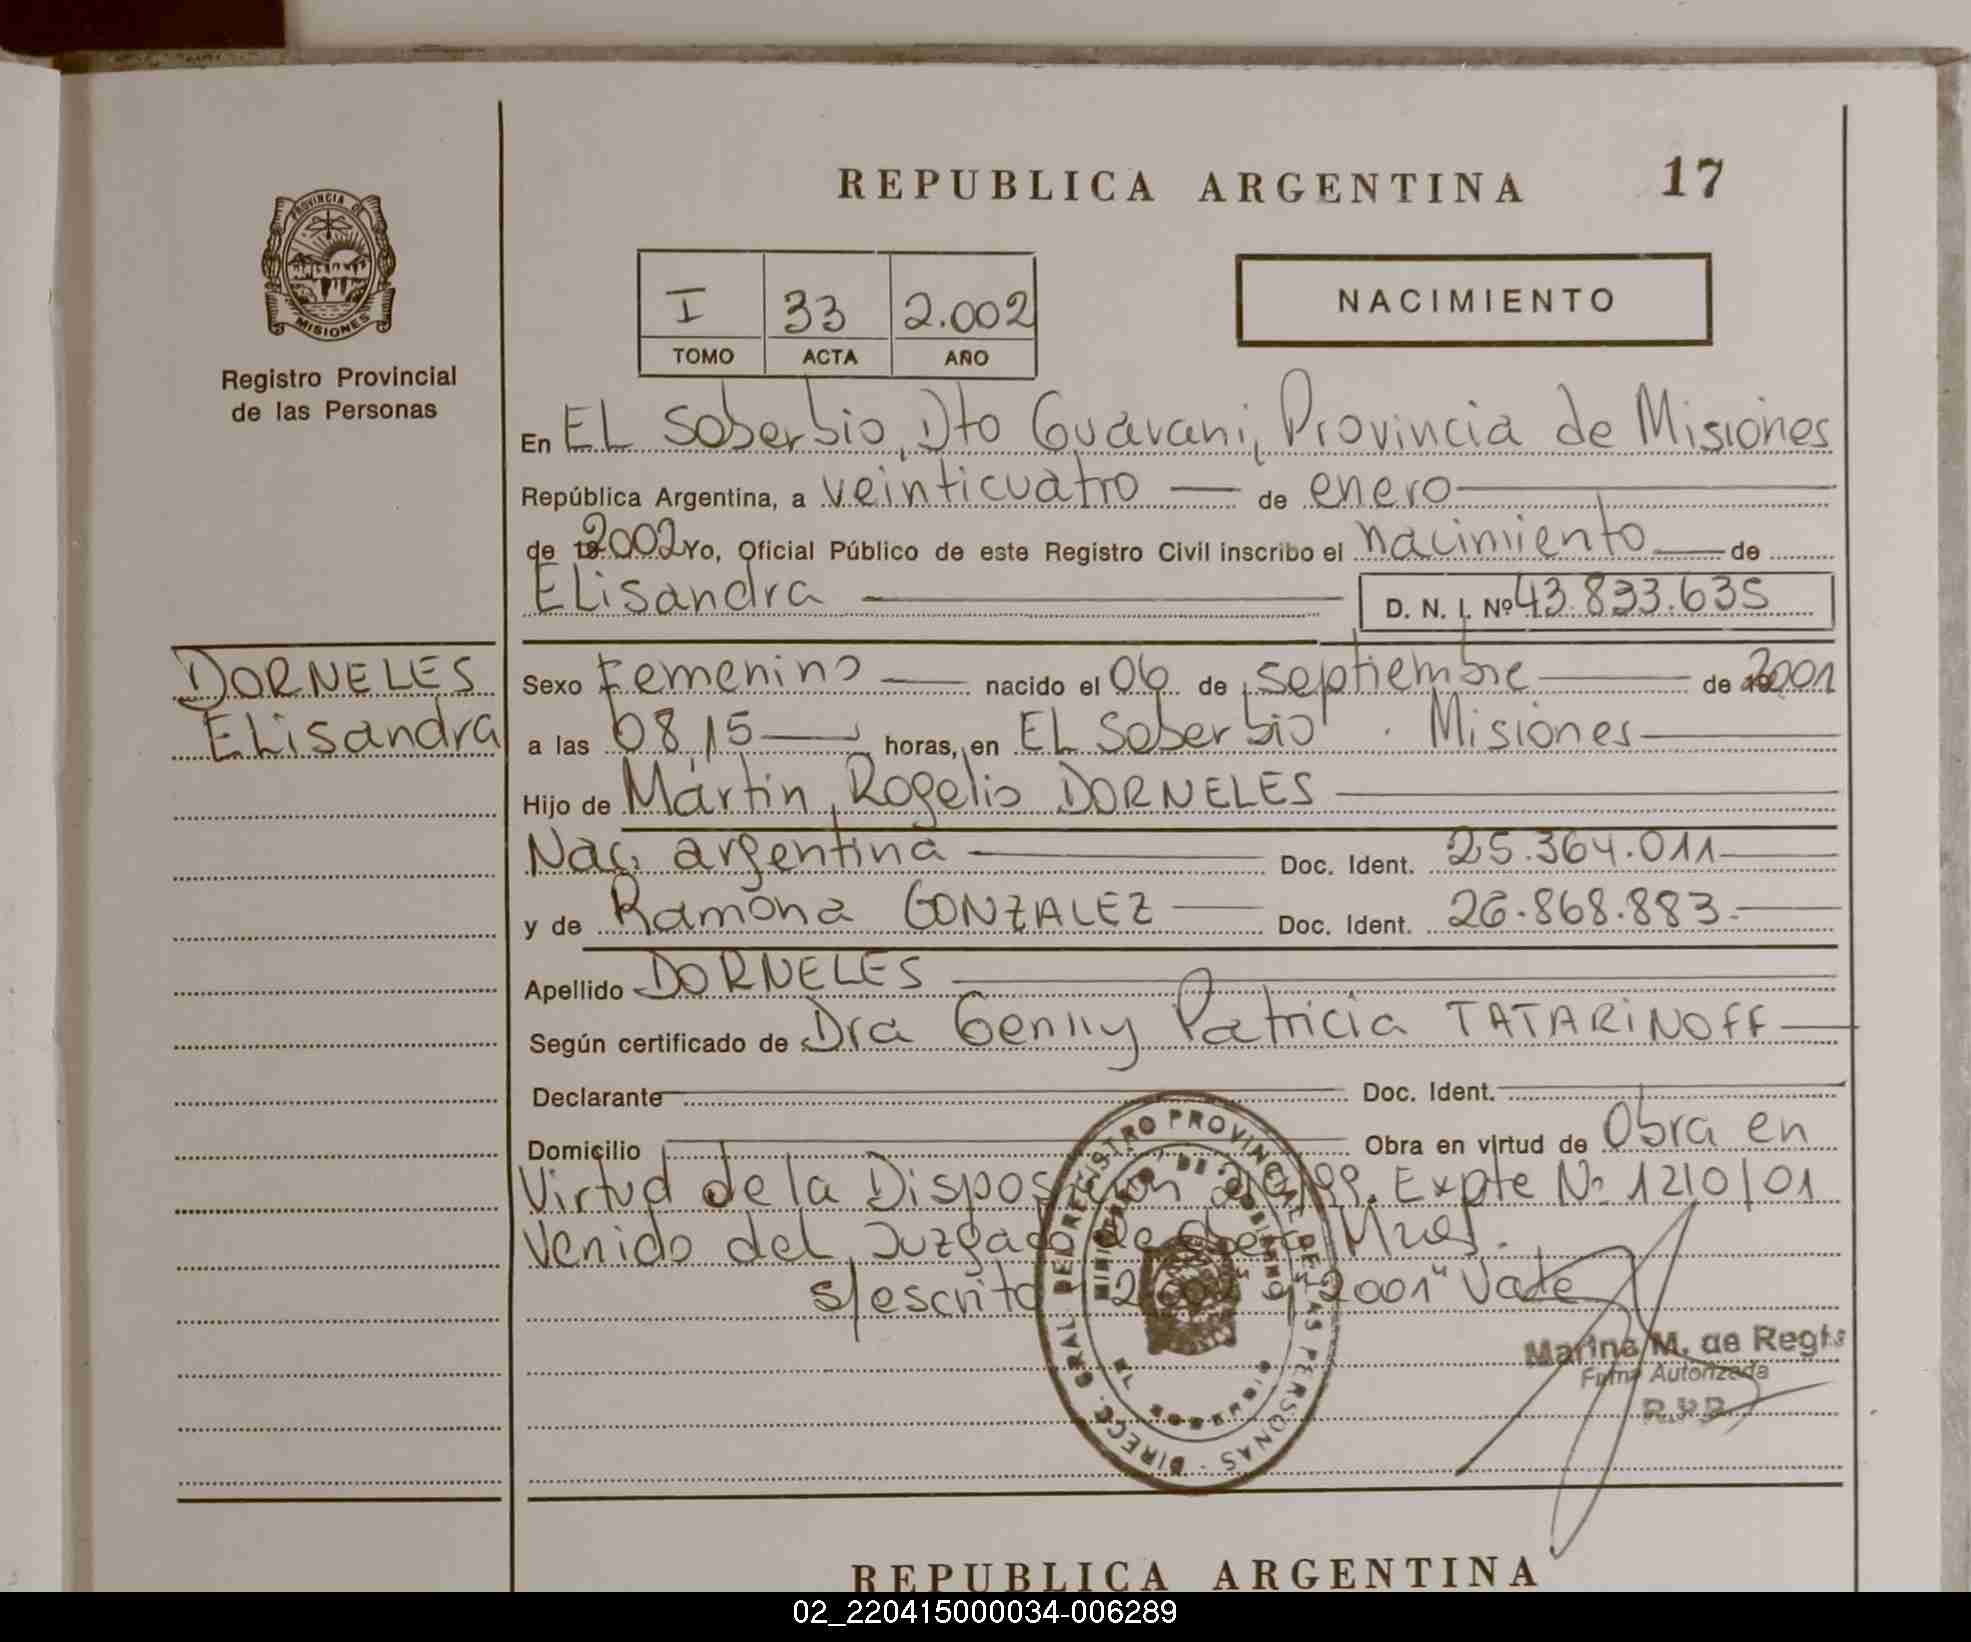 REPUBLICA ARGENTINA 17
PROVINCIA DE
MISIONES
Registro Provincial
de las Personas
I 33 2.002
TOMO ACTA AÑO
NACIMIENTO
En EL Soberbio, Dto Guarani, Provincia de Misiones
República Argentina, a veinticuatro — de enero
de 2002 Yo, Oficial Público de este Registro Civil inscribo el nacimiento — de
ELisandra — D. N. I. Nº 43.833.635
DORNELES
ELisandra
Sexo Femenino — nacido el 06 de septiembre — de 2001
a las 08,15 — horas, en EL Soberbio . Misiones
Hijo de Martin, Rogelio DORNELES
Nac. argentina — Doc. Ident. 25.364.011
y de Ramona GONZALEZ — Doc. Ident. 26.868.883.
Apellido DORNELES
Según certificado de Dra Genny Patricia TATARiNOFF
Declarante — Doc. Ident.
Domicilio — Obra en virtud de Obra en
Virtud de la Disposición 99. Expte Nº 1210/01
Venido del Juzgado de Mnes.
s/escrito "2001" Vale
DIRECC. GRAL. DEL REGISTRO PROVINCIAL DE LAS PERSONAS
MINISTERIO DE GOBIERNO
Marina M. de Regis
Firma Autorizada
R.P.P.
REPUBLICA ARGENTINA
02_220415000034-006289